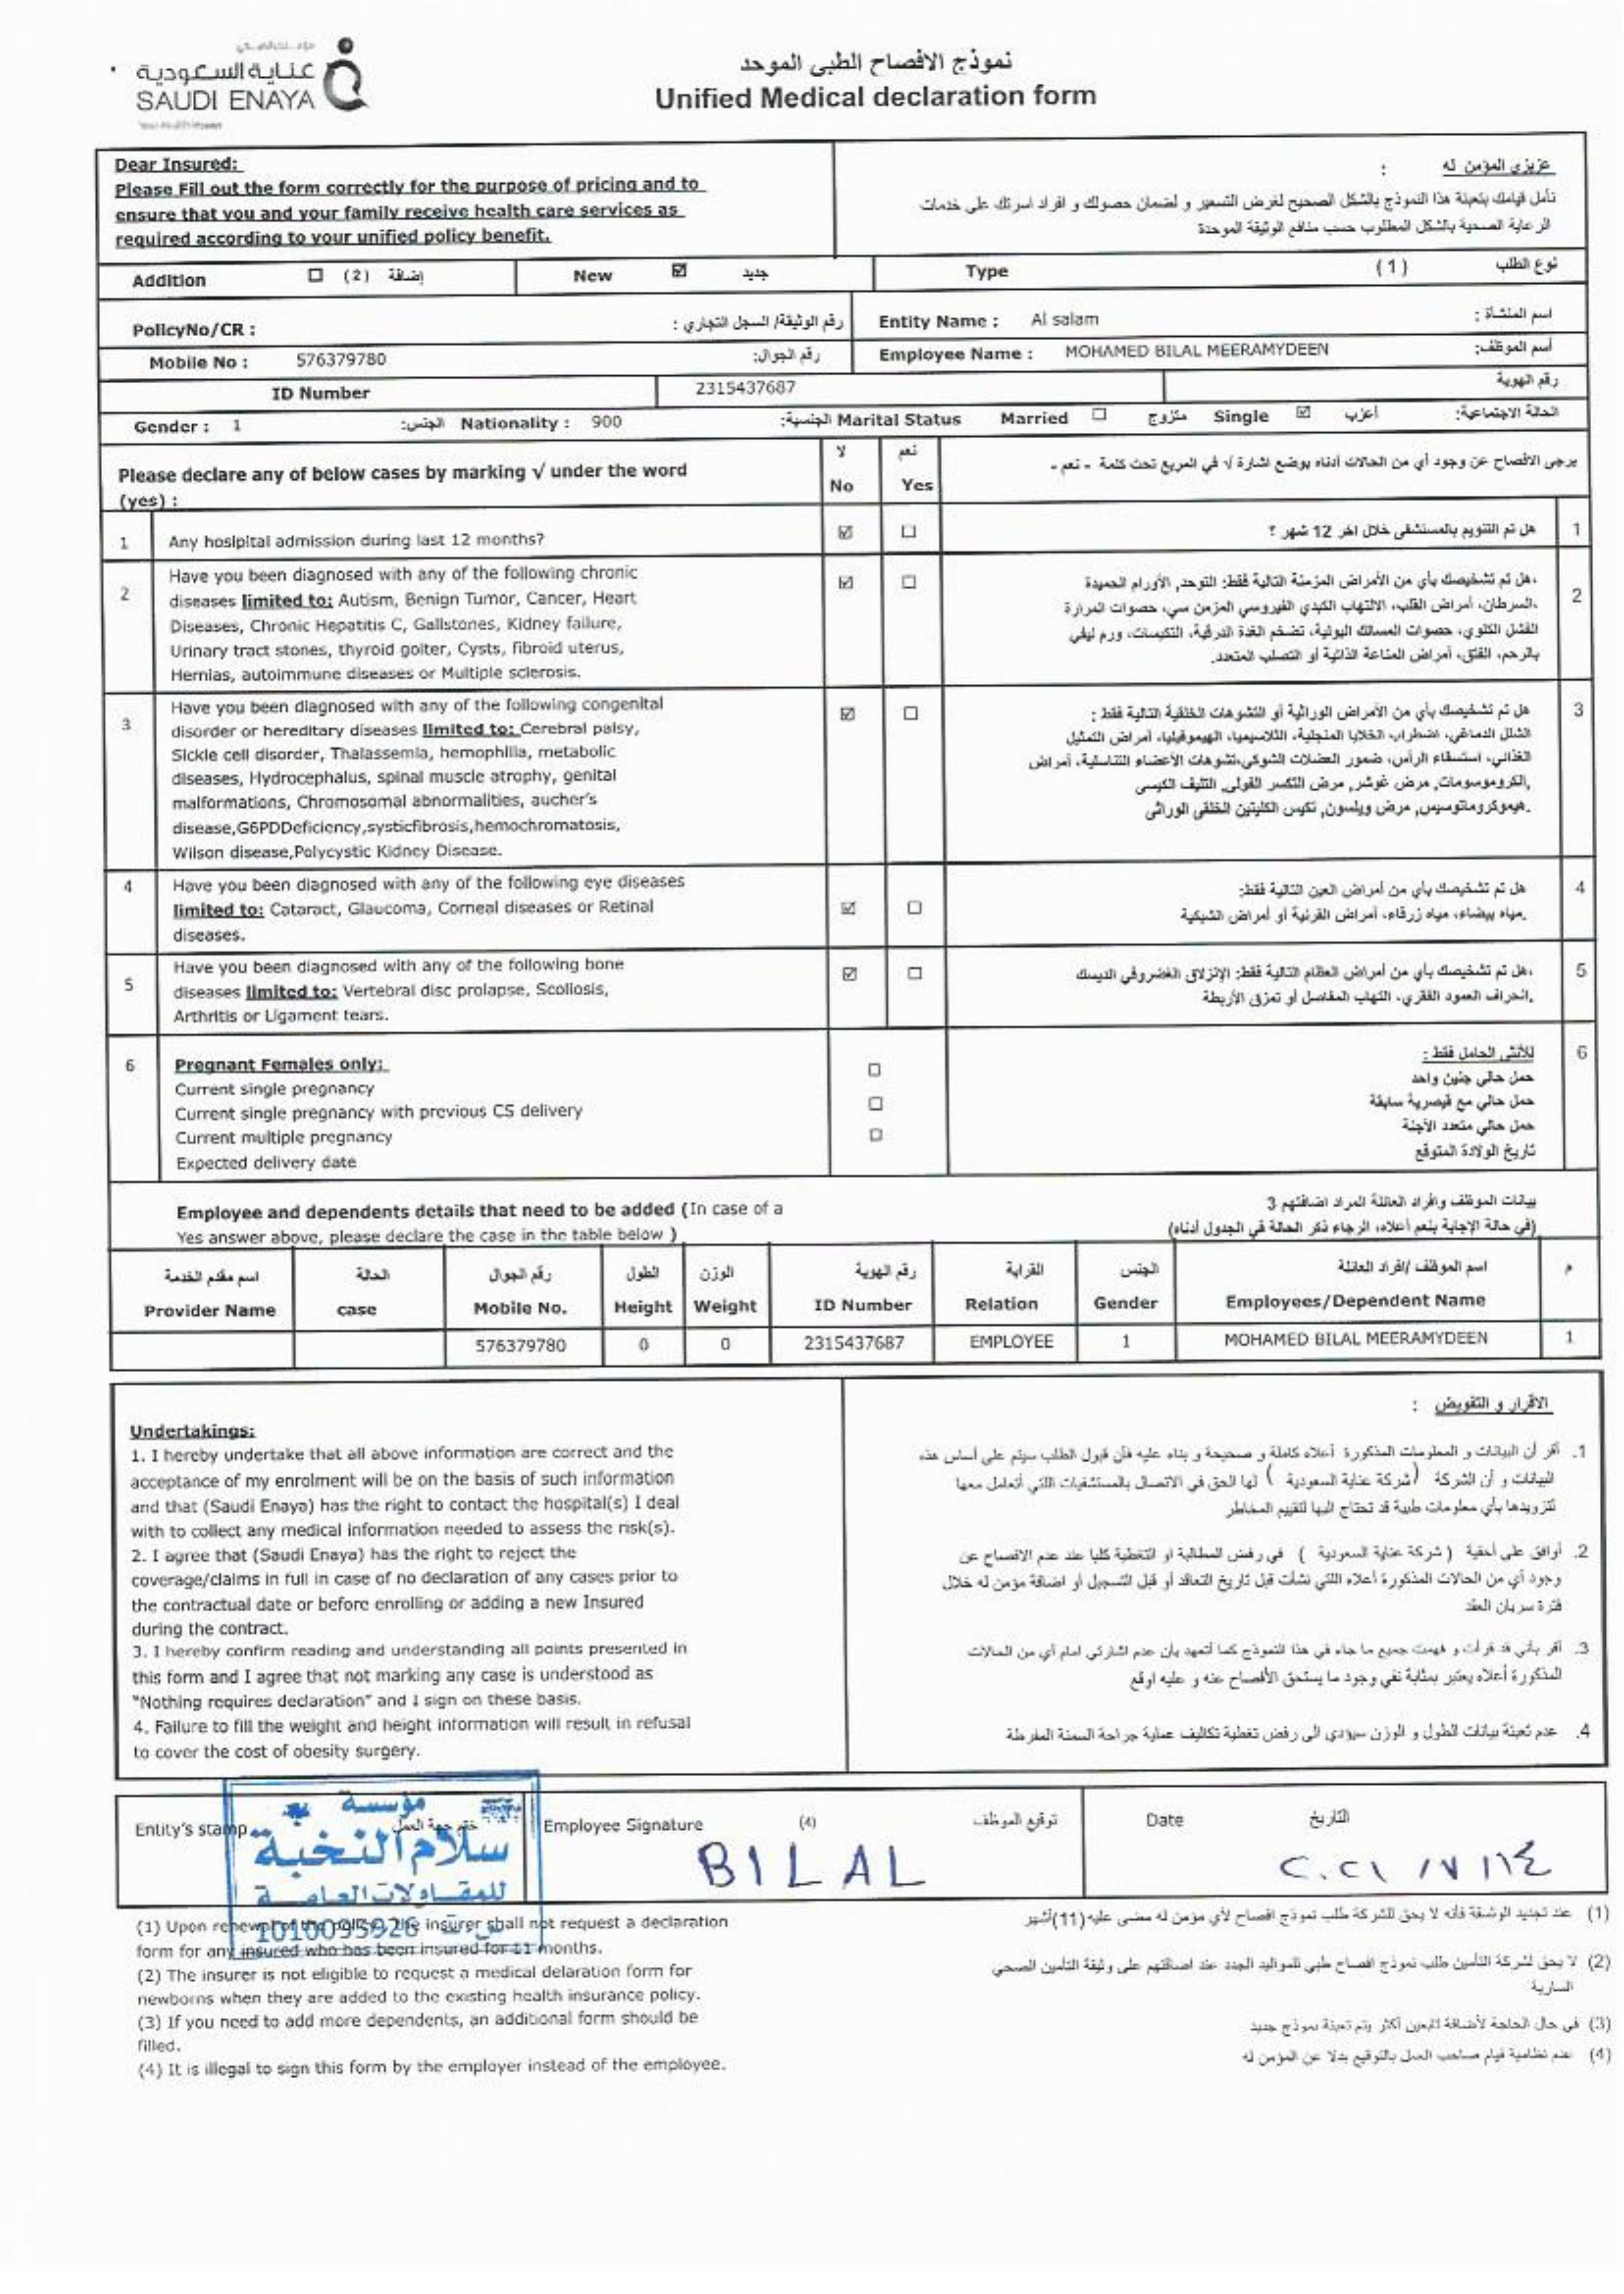 عناية السعودية
SAUDI ENAYA
نموذج الافصاح الطبي الموحد
Unified Medical declaration form
Dear Insured:
Please Fill out the form correctly for the purpose of pricing and to
ensure that you and your family receive health care services as
required according to your unified policy benefit.
عزيزي المؤمن له :
نأمل قيامك بتعبئة هذا النموذج بالشكل الصحيح لغرض التسعير و لضمان حصولك و افراد اسرتك على خدمات
الرعاية الصحية بالشكل المطلوب حسب منافع الوثيقة الموحدة
Addition ☐ (2) إضافة New ☑ جديد Type (1) نوع الطلب
PolicyNo/CR : رقم الوثيقة/ السجل التجاري : Entity Name : Al salam اسم المنشأة :
Mobile No : 576379780 رقم الجوال: Employee Name : MOHAMED BILAL MEERAMYDEEN أسم الموظف:
ID Number 2315437687 رقم الهوية
Gender : 1 الجنس: Nationality : 900 الجنسية: Marital Status Married ☐ متزوج Single ☑ أعزب الحالة الاجتماعية:
Please declare any of below cases by marking √ under the word
(yes) :
لا No
نعم Yes
يرجى الافصاح عن وجود أي من الحالات أدناه بوضع اشارة √ في المربع تحت كلمة - نعم -
1 Any hosipital admission during last 12 months? ☑ ☐ هل تم التنويم بالمستشفى خلال اخر 12 شهر ؟ 1
2 Have you been diagnosed with any of the following chronic
diseases limited to: Autism, Benign Tumor, Cancer, Heart
Diseases, Chronic Hepatitis C, Gallstones, Kidney failure,
Urinary tract stones, thyroid goiter, Cysts, fibroid uterus,
Hernias, autoimmune diseases or Multiple sclerosis.
☑ ☐
هل تم تشخيصك بأي من الأمراض المزمنة التالية فقط: التوحد, الأورام الحميدة، 2
السرطان، أمراض القلب، الالتهاب الكبدي الفيروسي المزمن سي، حصوات المرارة،
الفشل الكلوي، حصوات المسالك البولية، تضخم الغدة الدرقية، التكيسات، ورم ليفي
بالرحم، الفتق، أمراض المناعة الذاتية أو التصلب المتعدد.
3 Have you been diagnosed with any of the following congenital
disorder or hereditary diseases limited to: Cerebral palsy,
Sickle cell disorder, Thalassemia, hemophilia, metabolic
diseases, Hydrocephalus, spinal muscle atrophy, genital
malformations, Chromosomal abnormalities, aucher's
disease,G6PDDeficiency,systicfibrosis,hemochromatosis,
Wilson disease,Polycystic Kidney Disease.
☑ ☐
هل تم تشخيصك بأي من الأمراض الوراثية أو التشوهات الخلقية التالية فقط : 3
الشلل الدماغي، اضطراب الخلايا المنجلية، الثلاسيميا، الهيموفيليا، أمراض التمثيل
الغذائي، استسقاء الرأس، ضمور العضلات الشوكي،تشوهات الأعضاء التناسلية، أمراض
الكروموسومات, مرض غوشر, مرض التكسر الفولي, التليف الكيسي,
هيموكروماتوسيس, مرض ويلسون, تكيس الكليتين الخلقي الوراثي.
4 Have you been diagnosed with any of the following eye diseases
limited to: Cataract, Glaucoma, Corneal diseases or Retinal
diseases.
☑ ☐
هل تم تشخيصك بأي من أمراض العين التالية فقط: 4
مياه بيضاء، مياه زرقاء، أمراض القرنية أو أمراض الشبكية.
5 Have you been diagnosed with any of the following bone
diseases limited to: Vertebral disc prolapse, Scoliosis,
Arthritis or Ligament tears.
☑ ☐
هل تم تشخيصك بأي من أمراض العظام التالية فقط: الإنزلاق الغضروفي الديسك، 5
انحراف العمود الفقري، التهاب المفاصل أو تمزق الأربطة.
6 Pregnant Females only:
Current single pregnancy ☐
Current single pregnancy with previous CS delivery ☐
Current multiple pregnancy ☐
Expected delivery date
للأنثى الحامل فقط : 6
حمل حالي جنين واحد
حمل حالي مع قيصرية سابقة
حمل حالي متعدد الأجنة
تاريخ الولادة المتوقع
Employee and dependents details that need to be added (In case of a
Yes answer above, please declare the case in the table below )
بيانات الموظف وافراد العائلة المراد اضافتهم 3
(في حالة الإجابة بنعم أعلاه، الرجاء ذكر الحالة في الجدول أدناه)
اسم مقدم الخدمة الحالة رقم الجوال الطول الوزن رقم الهوية القرابة الجنس اسم الموظف /افراد العائلة م
Provider Name case Mobile No. Height Weight ID Number Relation Gender Employees/Dependent Name
576379780 0 0 2315437687 EMPLOYEE 1 MOHAMED BILAL MEERAMYDEEN 1
Undertakings:
1. I hereby undertake that all above information are correct and the
acceptance of my enrolment will be on the basis of such information
and that (Saudi Enaya) has the right to contact the hospital(s) I deal
with to collect any medical information needed to assess the risk(s).
2. I agree that (Saudi Enaya) has the right to reject the
coverage/claims in full in case of no declaration of any cases prior to
the contractual date or before enrolling or adding a new Insured
during the contract.
3. I hereby confirm reading and understanding all points presented in
this form and I agree that not marking any case is understood as
"Nothing requires declaration" and I sign on these basis.
4. Failure to fill the weight and height information will result in refusal
to cover the cost of obesity surgery.
الاقرار و التفويض :
1. أقر أن البيانات و المعلومات المذكورة أعلاه كاملة و صحيحة و بناء عليه فأن قبول الطلب سيتم على أساس هذه
البيانات و أن الشركة (شركة عناية السعودية ) لها الحق في الاتصال بالمستشفيات اللتي أتعامل معها
لتزويدها بأي معلومات طبية قد تحتاج اليها لتقييم المخاطر
2. أوافق على أحقية ( شركة عناية السعودية ) في رفض المطالبة او التغطية كليا عند عدم الافصاح عن
وجود أي من الحالات المذكورة أعلاه اللتي نشأت قبل تاريخ التعاقد أو قبل التسجيل أو اضافة مؤمن له خلال
فترة سريان العقد
3. أقر بأني قد قرأت و فهمت جميع ما جاء في هذا النموذج كما أتعهد بأن عدم اشارتي امام أي من الحالات
المذكورة أعلاه يعتبر بمثابة نفي وجود ما يستحق الأفصاح عنه و عليه اوقع
4. عدم تعبئة بيانات الطول و الوزن سيؤدي الى رفض تغطية تكاليف عملية جراحة السمنة المفرطة
Entity's stamp ختم جهة العمل Employee Signature (4) توقيع الموظف Date التاريخ
مؤسسة
سلام النخبة
للمقاولات العامة
1010095926
BILAL
٢٠٢١ / ٧ / ١٤
(1) Upon renewal of the policy, the insurer shall not request a declaration
form for any insured who has been insured for 11 months.
(2) The insurer is not eligible to request a medical delaration form for
newborns when they are added to the existing health insurance policy.
(3) If you need to add more dependents, an additional form should be
filled.
(4) It is illegal to sign this form by the employer instead of the employee.
(1) عند تجديد الوثيقة فأنه لا يحق للشركة طلب نموذج افصاح لأي مؤمن له مضى عليه (11) أشهر
(2) لا يحق لشركة التأمين طلب نموذج افصاح طبي للمواليد الجدد عند اضافتهم على وثيقة التأمين الصحي
السارية
(3) في حال الحاجة لأضافة تابعين أكثر يتم تعبئة نموذج جديد
(4) عدم نظامية قيام صاحب العمل بالتوقيع بدلا عن المؤمن له